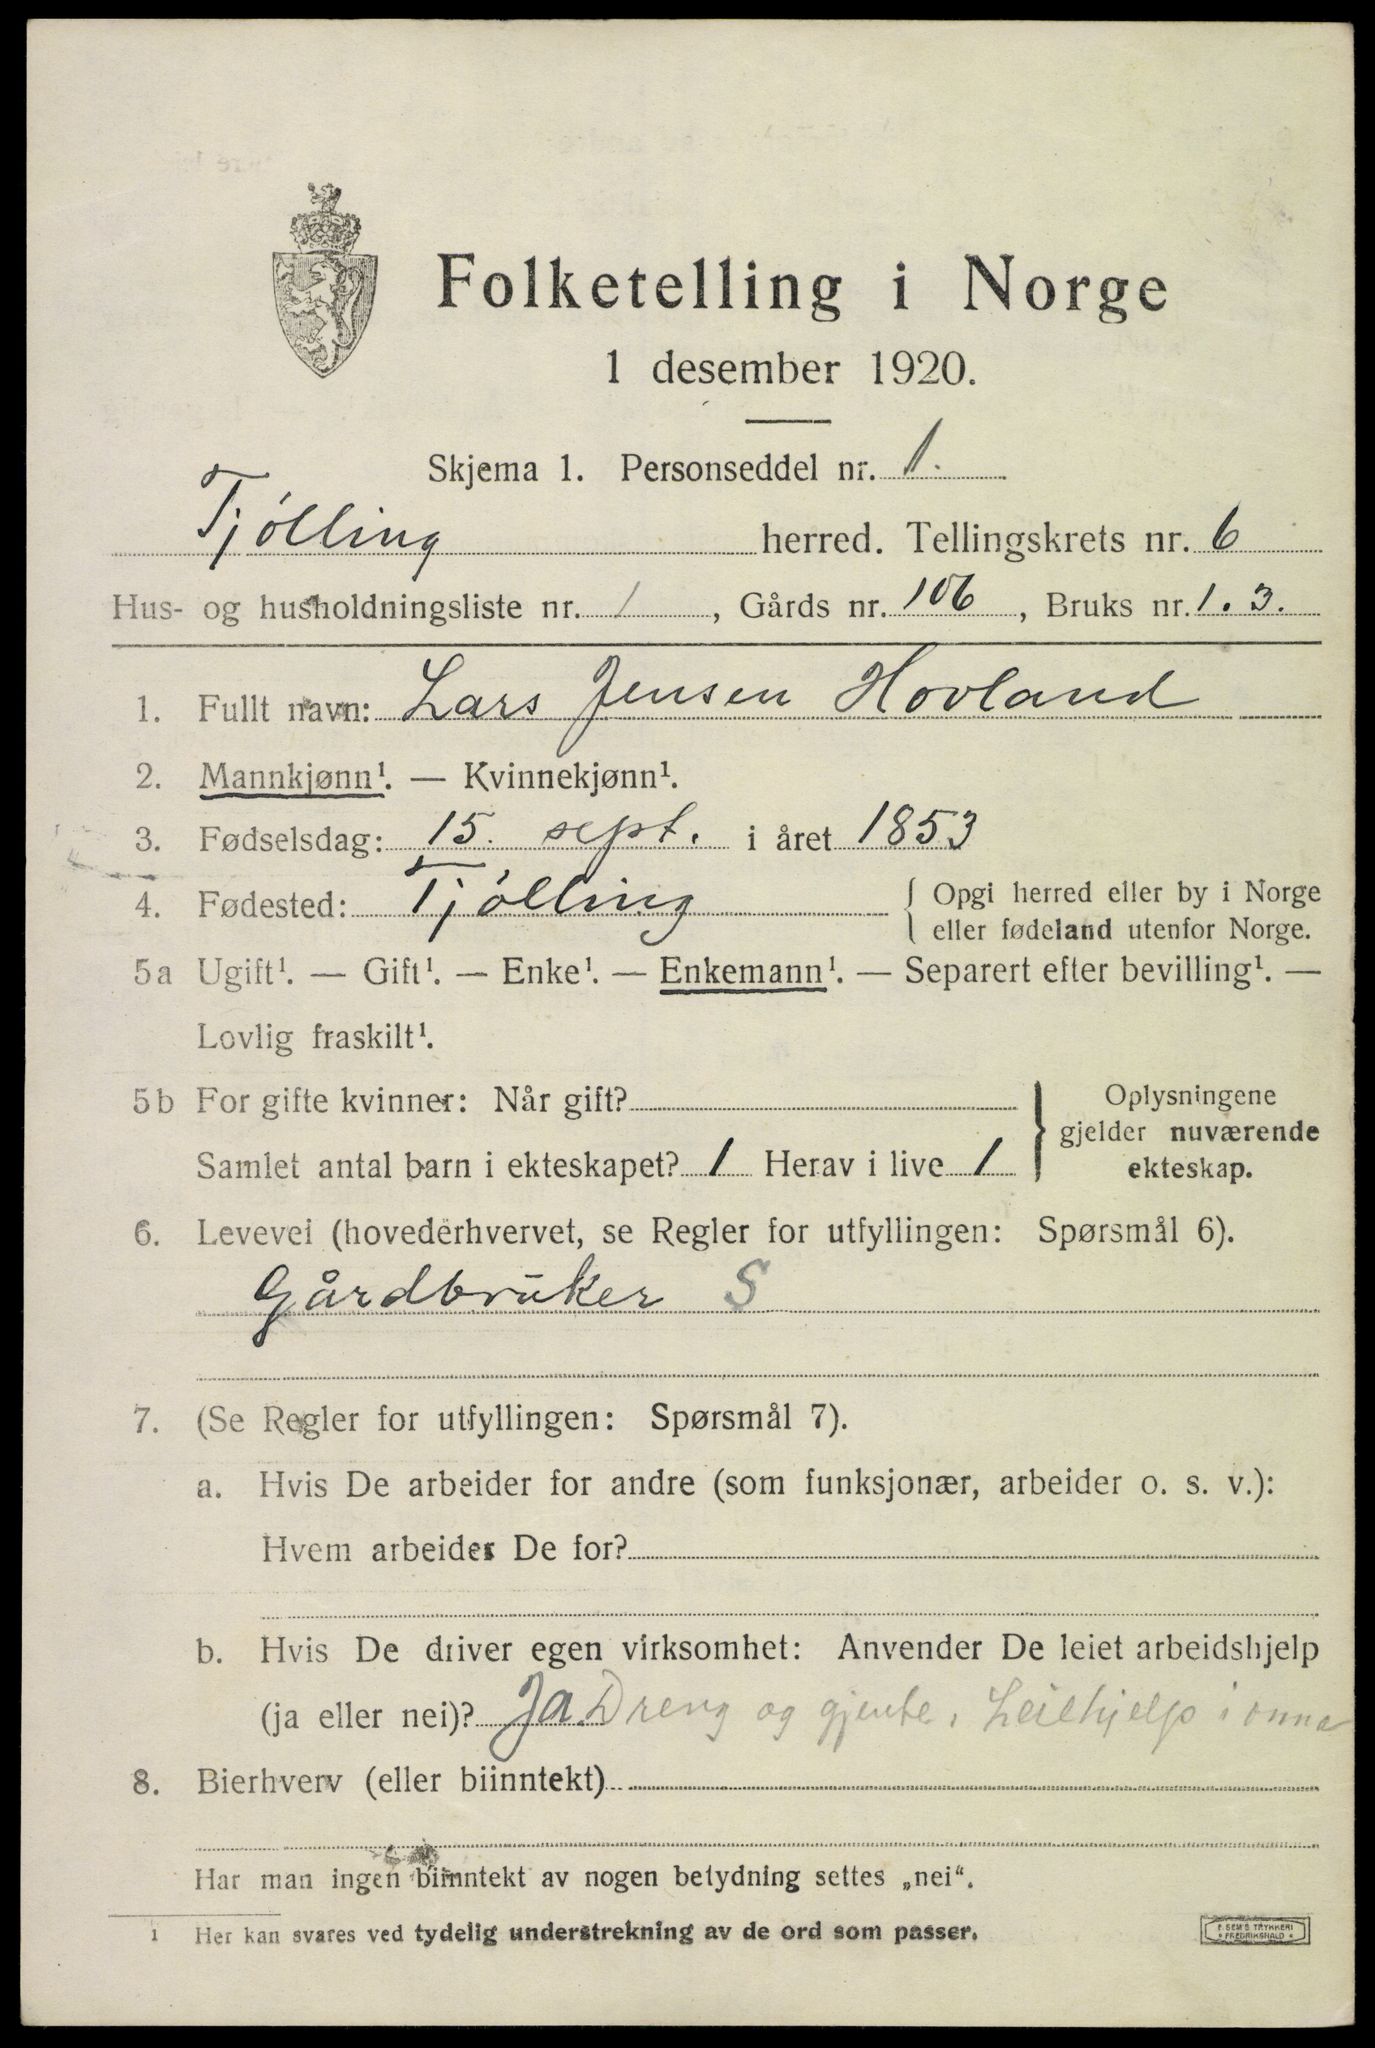 Folketelling i Norge
1 desember 1920.
Skjema 1. Personseddel nr. 1.
Tjölling herred. Tellingskrets nr. 6
Hus- og husholdningsliste nr. 1, Gårds nr. 106, Bruks nr. 1.3.
1. Fullt navn: Lars Jensen Hovland
2. Mannkjønn¹. — Kvinnekjønn¹.
3. Fødselsdag: 15. sept. i året 1853
4. Fødested: Tjölling { Opgi herred eller by i Norge
eller fødeland utenfor Norge.
5a Ugift¹. — Gift¹. — Enke¹. — Enkemann¹. — Separert efter bevilling¹. —
Lovlig fraskilt¹.
5b For gifte kvinner: Når gift? } Oplysningene
gjelder nuværende
Samlet antal barn i ekteskapet? 1 Herav i live 1 ekteskap.
6. Levevei (hovederhvervet, se Regler for utfyllingen: Spørsmål 6).
Gårdbruker S
7. (Se Regler for utfyllingen: Spørsmål 7).
a. Hvis De arbeider for andre (som funksjonær, arbeider o. s. v.):
Hvem arbeider De for?
b. Hvis De driver egen virksomhet: Anvender De leiet arbeidshjelp
(ja eller nei)? Ja Dreng og gjente, Leiehjelp i onna
8. Bierhverv (eller biinntekt)
Har man ingen biinntekt av nogen betydning settes „nei“.
1 Her kan svares ved tydelig understrekning av de ord som passer.
F. SEM'S TRYKKERI
• FREDRIKSHALD •